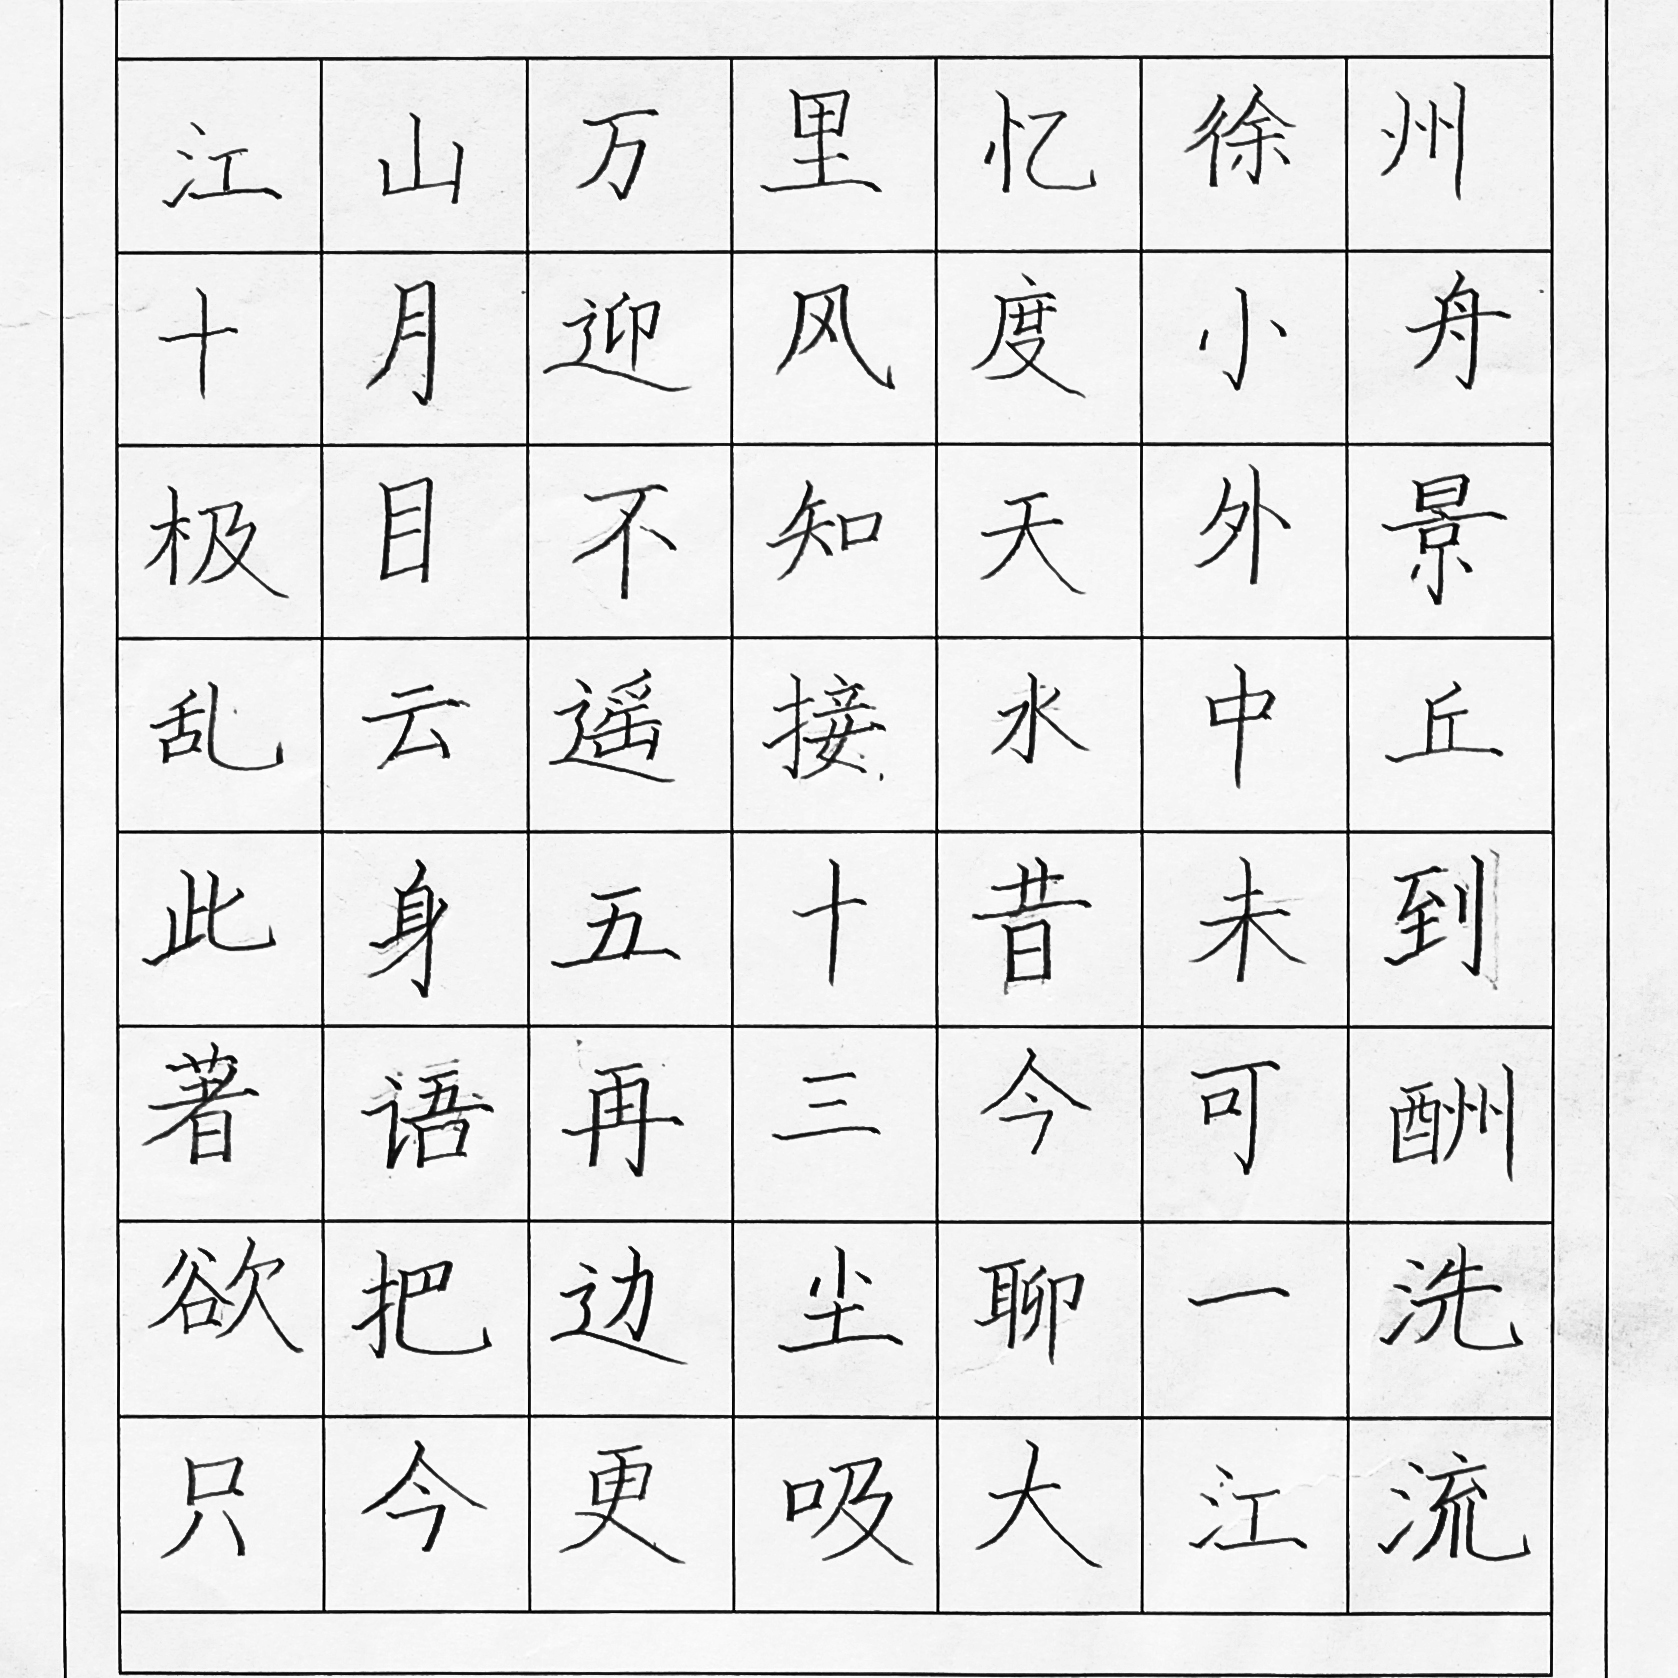 江山万里忆徐州
十月迎风度小舟
极目不知天外景
乱云遥接水中丘
此身五十昔未到
著语再三今可酬
欲把边尘聊一洗
只今更吸大江流